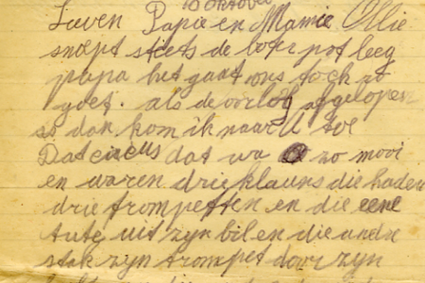 10 Oktober
Lieven Papie en Mamie Ollie
snoept steets de boter pot leeg
papa het gaat ons toch zo
goet. als de oorlog afgelopen
is dan kom ik naar U toe
Dat circus dat wa zo mooi
en waren drie klauns die haden
drie trompetten en die eene
tute uit zyn bil en die andre
stak zyn trompet door zyn